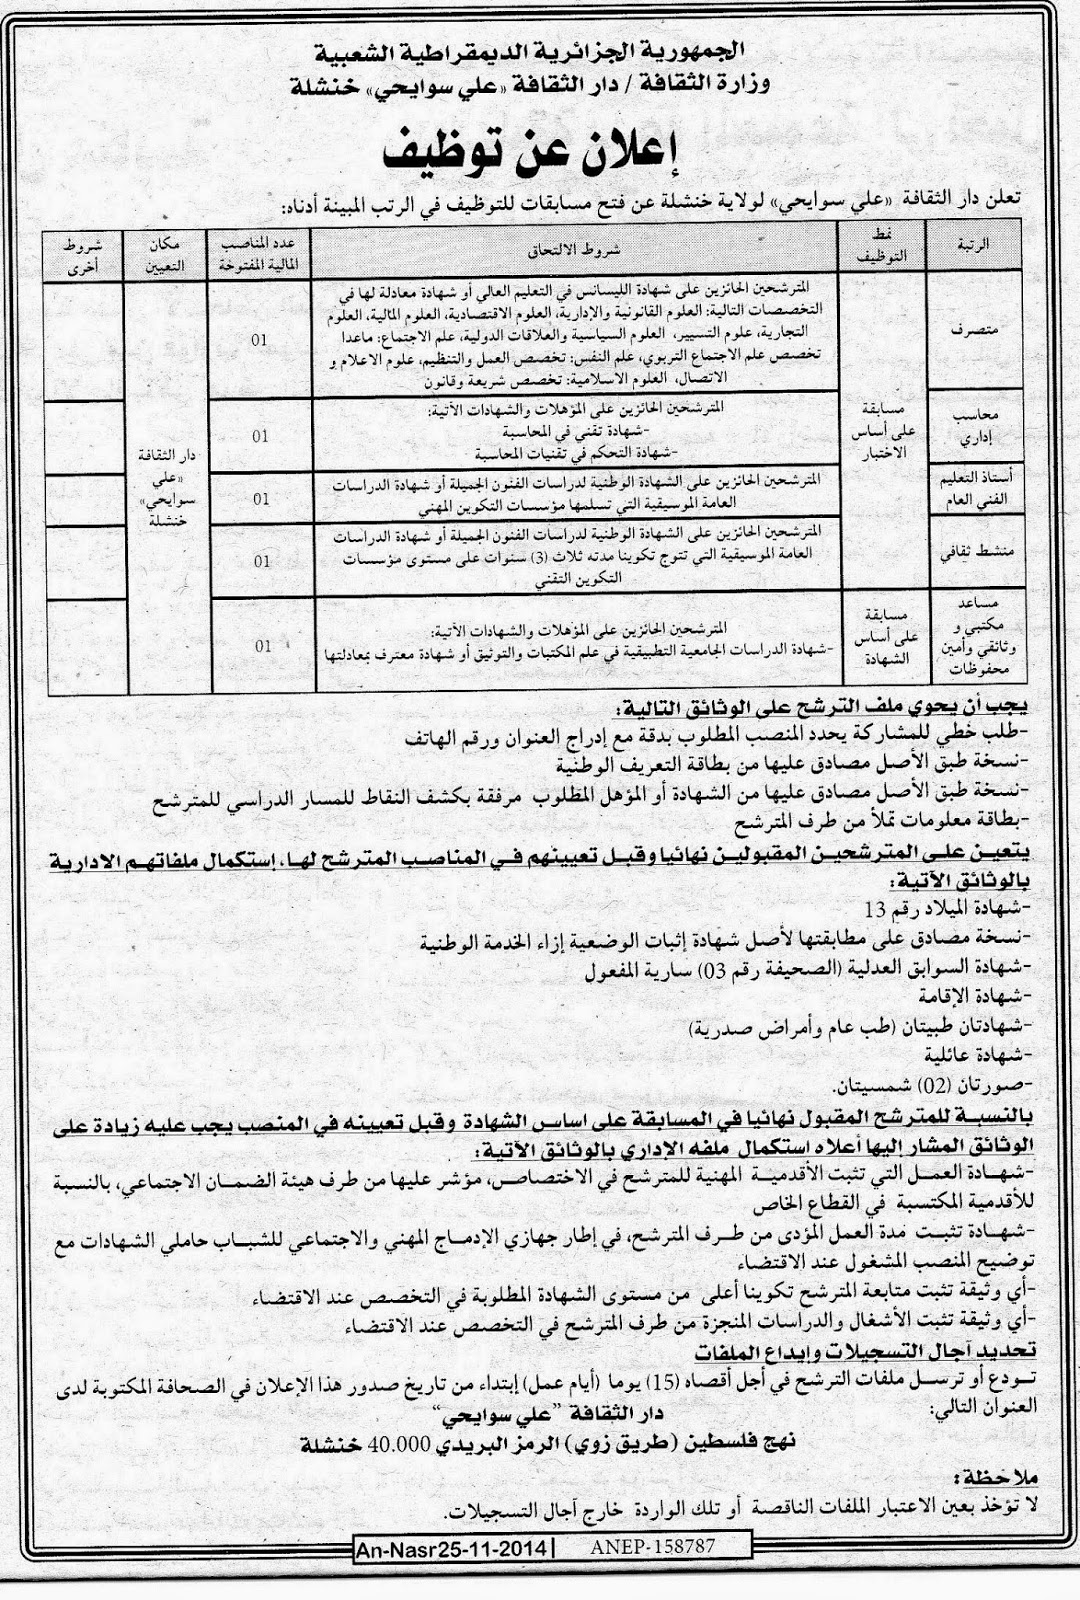 الجمهورية الجزائرية الديمقراطية الشعبية
وزارة الثقافة / دار الثقافة «علي سوايحي» خنشلة
إعلان عن توظيف
تعلن دار الثقافة «علي سوايحي» لولاية خنشلة عن فتح مسابقات للتوظيف في الرتب المبينة أدناه:
الرتبة
نمط
التوظيف
شروط الالتحاق
عدد المناصب
المالية المفتوحة
مكان
التعيين
شروط
أخرى
متصرف
المترشحين الحائزين على شهادة الليسانس في التعليم العالي أو شهادة معادلة لها في
التخصصات التالية: العلوم القانونية والإدارية، العلوم الاقتصادية، العلوم المالية، العلوم
التجارية، علوم التسيير، العلوم السياسية والعلاقات الدولية، علم الاجتماع: ماعدا
تخصص علم الاجتماع التربوي، علم النفس: تخصص العمل والتنظيم، علوم الاعلام و
الاتصال، العلوم الاسلامية: تخصص شريعة وقانون
01
محاسب
إداري
مسابقة
على أساس
الاختبار
المترشحين الحائزين على المؤهلات والشهادات الآتية:
-شهادة تقني في المحاسبة
-شهادة التحكم في تقنيات المحاسبة
01
دار الثقافة
«علي
سوايحي»
خنشلة
أستاذ التعليم
الفني العام
المترشحين الحائزين على الشهادة الوطنية لدراسات الفنون الجميلة أو شهادة الدراسات
العامة الموسيقية التي تسلمها مؤسسات التكوين المهني
01
منشط ثقافي
المترشحين الحائزين على الشهادة الوطنية لدراسات الفنون الجميلة أو شهادة الدراسات
العامة الموسيقية التي تتوج تكوينا مدته ثلاث (3) سنوات على مستوى مؤسسات
التكوين التقني
01
مساعد
مكتبي و
وثائقي وأمين
محفوظات
مسابقة
على أساس
الشهادة
المترشحين الحائزين على المؤهلات والشهادات الآتية:
-شهادة الدراسات الجامعية التطبيقية في علم المكتبات والتوثيق أو شهادة معترف بمعادلتها
01
يجب أن يحوي ملف الترشح على الوثائق التالية:
-طلب خطي للمشاركة يحدد المنصب المطلوب بدقة مع إدراج العنوان ورقم الهاتف
-نسخة طبق الأصل مصادق عليها من بطاقة التعريف الوطنية
-نسخة طبق الأصل مصادق عليها من الشهادة أو المؤهل المطلوب مرفقة بكشف النقاط للمسار الدراسي للمترشح
-بطاقة معلومات تملأ من طرف المترشح
يتعين على المترشحين المقبولين نهائيا وقبل تعيينهم في المناصب المترشح لها، إستكمال ملفاتهم الادارية
بالوثائق الآتية:
-شهادة الميلاد رقم 13
-نسخة مصادق على مطابقتها لأصل شهادة إثبات الوضعية إزاء الخدمة الوطنية
-شهادة السوابق العدلية (الصحيفة رقم 03) سارية المفعول
-شهادة الإقامة
-شهادتان طبيتان (طب عام وأمراض صدرية)
-شهادة عائلية
-صورتان (02) شمسيتان.
بالنسبة للمترشح المقبول نهائيا في المسابقة على اساس الشهادة وقبل تعيينه في المنصب يجب عليه زيادة على
الوثائق المشار إليها أعلاه استكمال ملفه الإداري بالوثائق الآتية:
-شهادة العمل التي تثبت الأقدمية المهنية للمترشح في الاختصاص، مؤشر عليها من طرف هيئة الضمان الاجتماعي، بالنسبة
للأقدمية المكتسبة في القطاع الخاص
-شهادة تثبت مدة العمل المؤدى من طرف المترشح، في إطار جهازي الإدماج المهني والاجتماعي للشباب حاملي الشهادات مع
توضيح المنصب المشغول عند الاقتضاء
-أي وثيقة تثبت متابعة المترشح تكوينا أعلى من مستوى الشهادة المطلوبة في التخصص عند الاقتضاء
-أي وثيقة تثبت الأشغال والدراسات المنجزة من طرف المترشح في التخصص عند الاقتضاء
تحديد آجال التسجيلات وإيداع الملفات
تودع أو ترسل ملفات الترشح في أجل أقصاه (15) يوما (أيام عمل) إبتداء من تاريخ صدور هذا الإعلان في الصحافة المكتوبة لدى
العنوان التالي:
دار الثقافة "علي سوايحي"
نهج فلسطين (طريق زوي) الرمز البريدي 40.000 خنشلة
ملاحظة:
لا تؤخذ بعين الاعتبار الملفات الناقصة أو تلك الواردة خارج آجال التسجيلات.
An-Nasr25-11-2014|
ANEP-158787